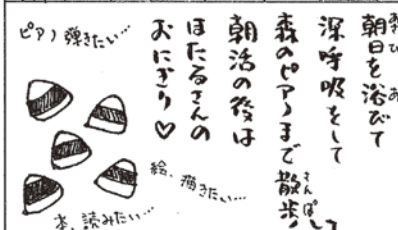 朝日を浴びて
深呼吸をして
森のピアノまで散歩して
朝活の後は
ほたるさんの
おにぎり♡
ピアノ弾きたい…
絵、描きたい…
本、読みたい…